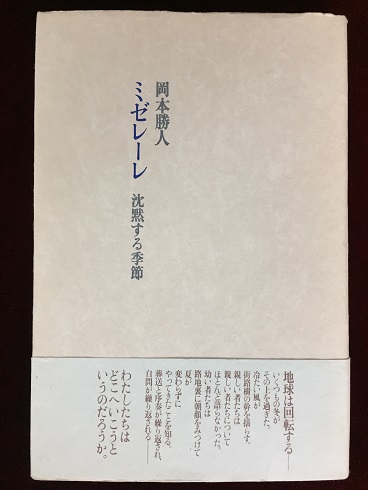 岡本勝人
ミゼレーレ
沈黙する季節
地球は回転する──
いくつもの冬が
その上を過ぎた。
冷たい風が
街路樹の幹を揺らす。
親しい者たちは
親しい者たちについて
ほとんど語らなかった。
幼い者たちは
路地裏に朝顔をみつけて
夏が
変わらずに
やってきたことを知る。
葬送と序奏が繰り返され、
自問が繰り返される──
わたしたちは
どこへいこうと
いうのだろうか。